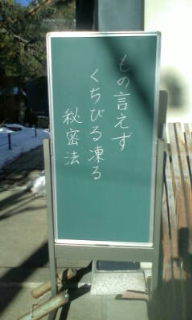 もの言えず
くちびる凍る
秘密法